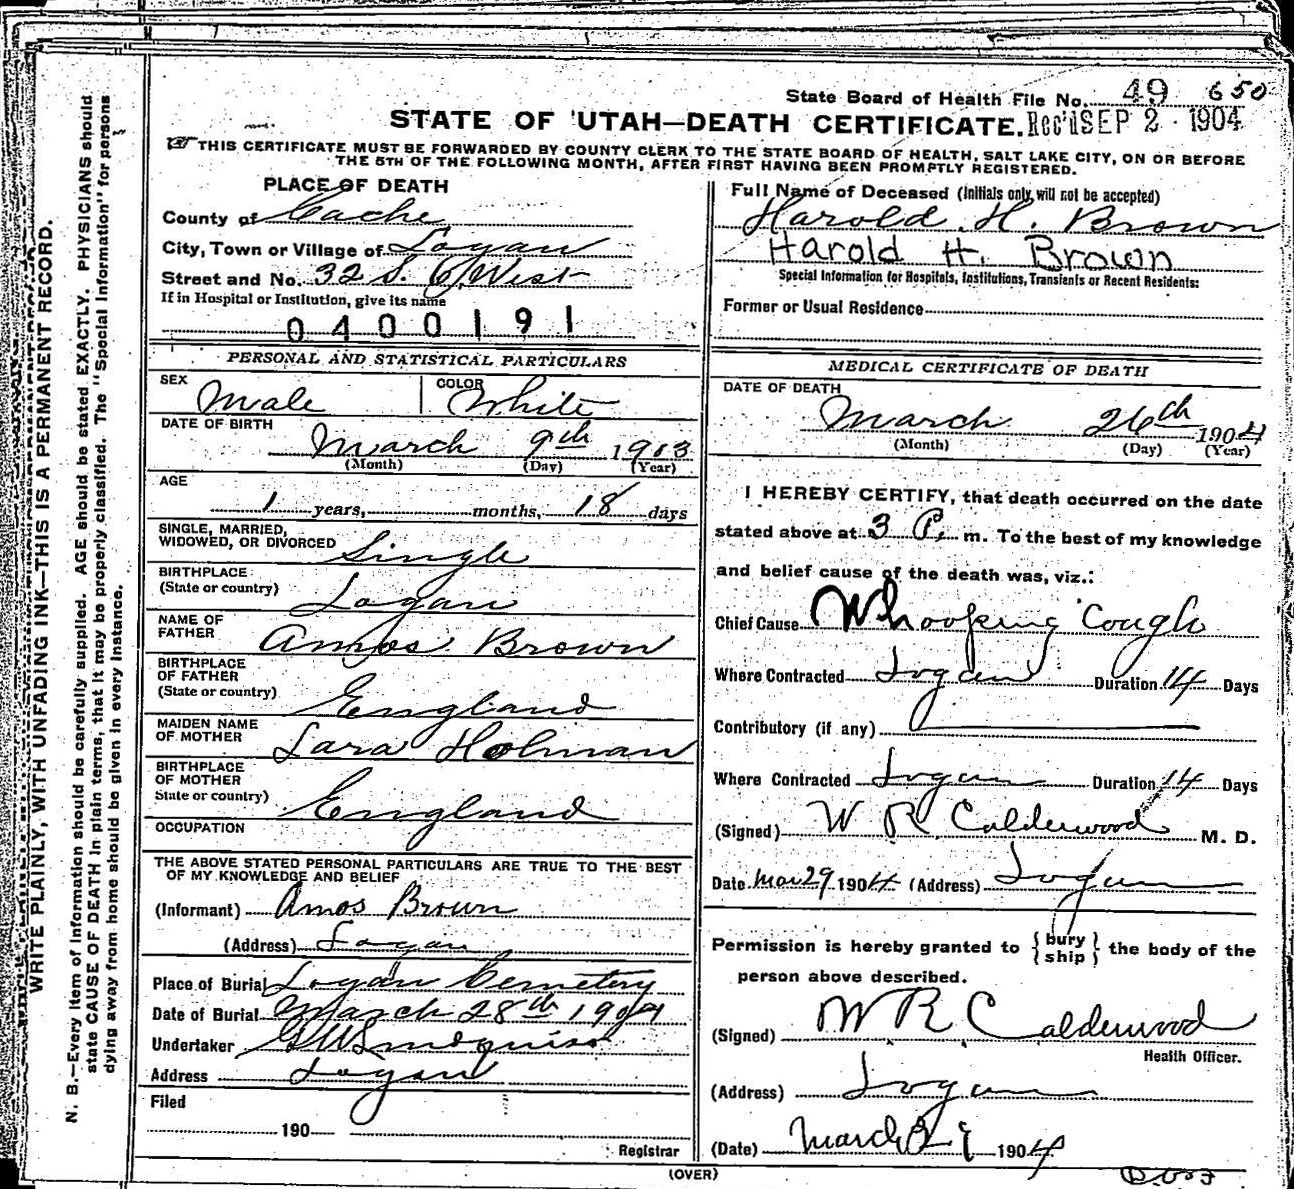 State Board of Health File No. 49 650
STATE OF UTAH—DEATH CERTIFICATE. Rec'd SEP 2 1904
THIS CERTIFICATE MUST BE FORWARDED BY COUNTY CLERK TO THE STATE BOARD OF HEALTH, SALT LAKE CITY, ON OR BEFORE
THE 5TH OF THE FOLLOWING MONTH, AFTER FIRST HAVING BEEN PROMPTLY REGISTERED.
WRITE PLAINLY, WITH UNFADING INK—THIS IS A PERMANENT RECORD.
N. B.—Every item of information should be carefully supplied. AGE should be stated EXACTLY. PHYSICIANS should
state CAUSE OF DEATH in plain terms, that it may be properly classified. The "Special Information" for persons
dying away from home should be given in every instance.
PLACE OF DEATH
County of Cache
City, Town or Village of Logan
Street and No. 32 S. 6 West
If in Hospital or Institution, give its name
0400191
PERSONAL AND STATISTICAL PARTICULARS
SEX Male COLOR White
DATE OF BIRTH
March 9th 1903
(Month) (Day) (Year)
AGE
1 years, months, 18 days
SINGLE, MARRIED,
WIDOWED, OR DIVORCED Single
BIRTHPLACE
(State or country) Logan
NAME OF
FATHER Amos Brown
BIRTHPLACE
OF FATHER
(State or country) England
MAIDEN NAME
OF MOTHER Sara Holman
BIRTHPLACE
OF MOTHER
State or country) England
OCCUPATION
THE ABOVE STATED PERSONAL PARTICULARS ARE TRUE TO THE BEST
OF MY KNOWLEDGE AND BELIEF
(Informant) Amos Brown
(Address) Logan
Place of Burial Logan Cemetery
Date of Burial March 28th 1904
Undertaker G W Lindquist
Address Logan
Filed
190
Registrar
Full Name of Deceased (Initials only will not be accepted)
Harold H. Brown
Harold H. Brown
Special Information for Hospitals, Institutions, Transients or Recent Residents:
Former or Usual Residence
MEDICAL CERTIFICATE OF DEATH
DATE OF DEATH
March 26th 1904
(Month) (Day) (Year)
I HEREBY CERTIFY, that death occurred on the date
stated above at 3 P. m. To the best of my knowledge
and belief cause of the death was, viz.:
Chief Cause Whooping Cough
Where Contracted Logan Duration 14 Days
Contributory (if any)
Where Contracted Logan Duration 14 Days
(Signed) W R Calderwood M. D.
Date Mar 29 1904 (Address) Logan
Permission is hereby granted to { bury ship } the body of the
person above described.
(Signed) W R Calderwood
Health Officer.
(Address) Logan
(Date) March 1904
(OVER)